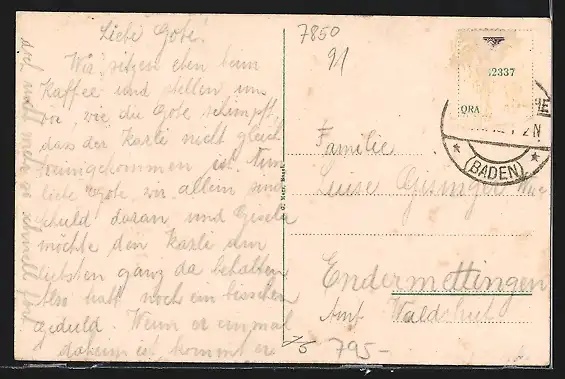 Liebe Gote!
Wir sitzen eben beim
Kaffee und stellen uns
vor, wie die Gote schimpft,
dass der Karle nicht gleich
heimgekommen ist. Nun
liebe Gote, wir allein sind
schuld daran und Gisela
möchte den Karle am
liebsten ganz da behalten
Also hab noch ein bisschen
geduld. Wenn er einmal
daheim ist kommt er
7850
91
Familie
Luise Gisinger
Endermettingen
Amt Waldshut
75 795-
12337
QRA
2N
* (BADEN) *